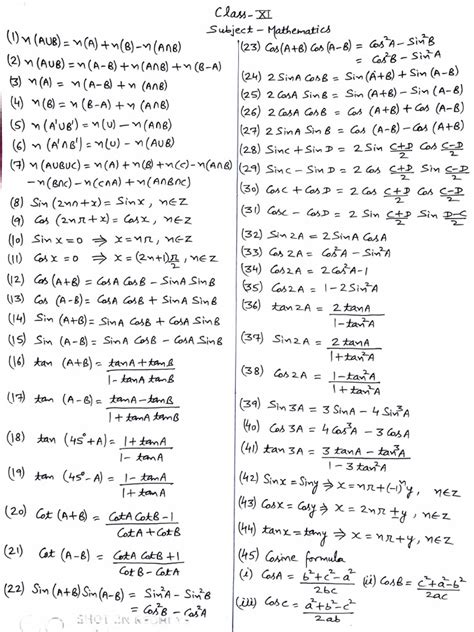 Class-XI
Subject - Mathematics
(1) n(A∪B) = n(A) + n(B) - n(A∩B)
(2) n(A∪B) = n(A-B) + n(A∩B) + n(B-A)
(3) n(A) = n(A-B) + n(A∩B)
(4) n(B) = n(B-A) + n(A∩B)
(5) n(A'∪B') = n(U) - n(A∩B)
(6) n(A'∩B') = n(U) - n(A∪B)
(7) n(A∪B∪C) = n(A) + n(B) + n(C) - n(A∩B)
- n(B∩C) - n(C∩A) + n(A∩B∩C)
(8) Sin (2nπ+x) = Sinx, n∈Z
(9) Cos (2nπ+x) = Cosx, n∈Z
(10) Sinx = 0 ⇒ x = nπ, n∈Z
(11) Cosx = 0 ⇒ x = (2n+1)π/2, n∈Z
(12) Cos(A+B) = CosA CosB - SinA SinB
(13) Cos (A-B) = CosA CosB + SinA SinB
(14) Sin (A+B) = SinA CosB + CosA SinB
(15) Sin (A-B) = SinA CosB - CosA SinB
(16) tan (A+B) = (tanA + tanB)/(1 - tanA tanB)
(17) tan (A-B) = (tanA - tanB)/(1 + tanA tanB)
(18) tan (45°+A) = (1 + tanA)/(1 - tanA)
(19) tan (45°-A) = (1 - tanA)/(1 + tanA)
(20) Cot (A+B) = (CotA CotB - 1)/(CotA + CotB)
(21) Cot (A-B) = (CotA CotB + 1)/(CotB - CotA)
(22) Sin(A+B) Sin(A-B) = Sin²A - Sin²B
= Cos²B - Cos²A
(23) Cos(A+B) Cos(A-B) = Cos²A - Sin²B
= Cos²B - Sin²A
(24) 2 SinA CosB = Sin(A+B) + Sin(A-B)
(25) 2 CosA SinB = Sin(A+B) - Sin(A-B)
(26) 2 CosA CosB = Cos (A+B) + Cos (A-B)
(27) 2 SinA SinB = Cos (A-B) - Cos (A+B)
(28) SinC + SinD = 2 Sin (C+D)/2 Cos (C-D)/2
(29) SinC - SinD = 2 Cos (C+D)/2 Sin (C-D)/2
(30) CosC + CosD = 2 Cos (C+D)/2 Cos (C-D)/2
(31) CosC - CosD = 2 Sin (C+D)/2 Sin (D-C)/2
(32) Sin 2A = 2 SinA CosA
(33) Cos 2A = Cos²A - Sin²A
(34) Cos2A = 2Cos²A-1
(35) Cos2A = 1-2Sin²A
(36) tan 2A = 2 tanA/(1-tan²A)
(37) Sin2A = 2 tanA/(1+tan²A)
(38) Cos 2A = (1-tan²A)/(1+tan²A)
(39) Sin 3A = 3 SinA - 4 Sin³A
(40) Cos 3A = 4 Cos³A - 3 CosA
(41) tan 3A = (3 tanA - tan³A)/(1-3tan²A)
(42) Sinx = Siny ⇒ x = nπ+(-1)ⁿy, n∈Z
(43) Cosx = Cosy ⇒ x = 2nπ ± y, n∈Z
(44) tanx = tany ⇒ x = nπ+y, n∈Z
(45) Cosine formula
(i) CosA = (b²+c²-a²)/2bc (ii) CosB = (c²+a²-b²)/2ac
(iii) CosC = (a²+b²-c²)/2ab